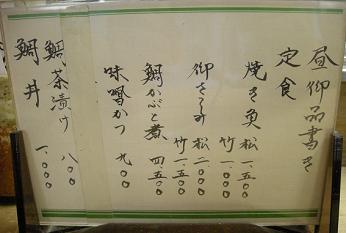 昼御品書き
定食
焼き魚 松 一、五〇〇
竹 一、〇〇〇
御さしみ 松 二、〇〇〇
竹 一、五〇〇
鯛かぶと煮 四、五〇〇
味噌かつ 九〇〇
鯛茶漬け 八〇〇
鯛丼 一、〇〇〇